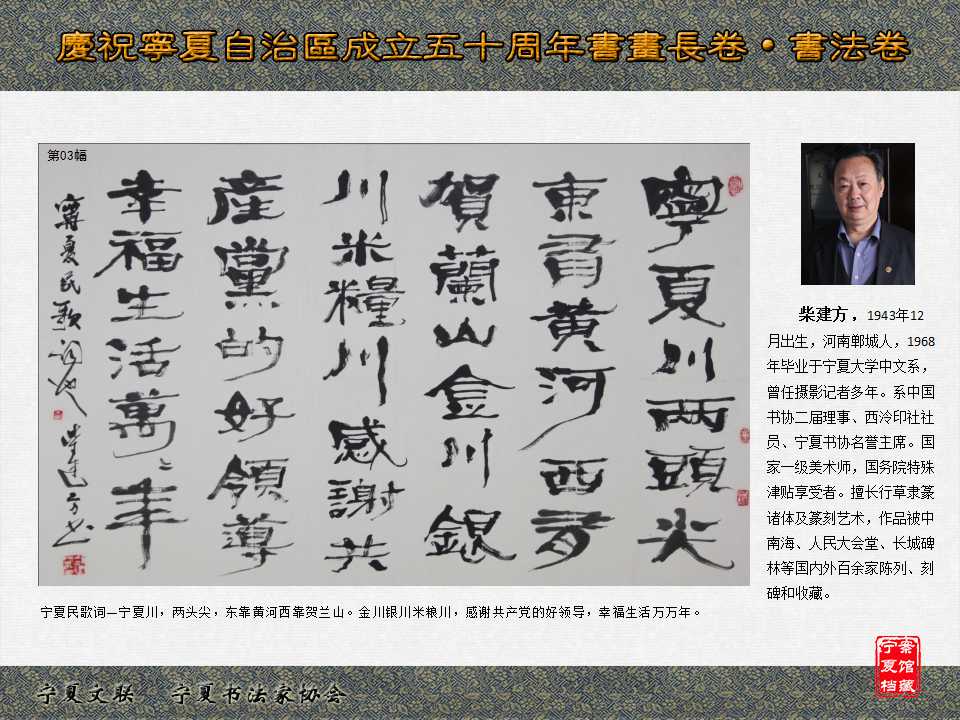 慶祝寧夏自治區成立五十周年書畫長卷·書法卷
第03幅
寧夏川兩頭尖
東靠黄河西靠
賀蘭山金川銀
川米糧川感謝共
産黨的好領導
幸福生活萬々年
寧夏民歌词也 柴建方书
宁夏民歌词—宁夏川，两头尖，东靠黄河西靠贺兰山。金川银川米粮川，感谢共产党的好领导，幸福生活万万年。
柴建方，1943年12
月出生，河南郸城人，1968
年毕业于宁夏大学中文系，
曾任摄影记者多年。系中国
书协二届理事、西泠印社社
员、宁夏书协名誉主席。国
家一级美术师，国务院特殊
津贴享受者。擅长行草隶篆
诸体及篆刻艺术，作品被中
南海、人民大会堂、长城碑
林等国内外百余家陈列、刻
碑和收藏。
宁夏档
案馆藏
宁夏文联 宁夏书法家协会